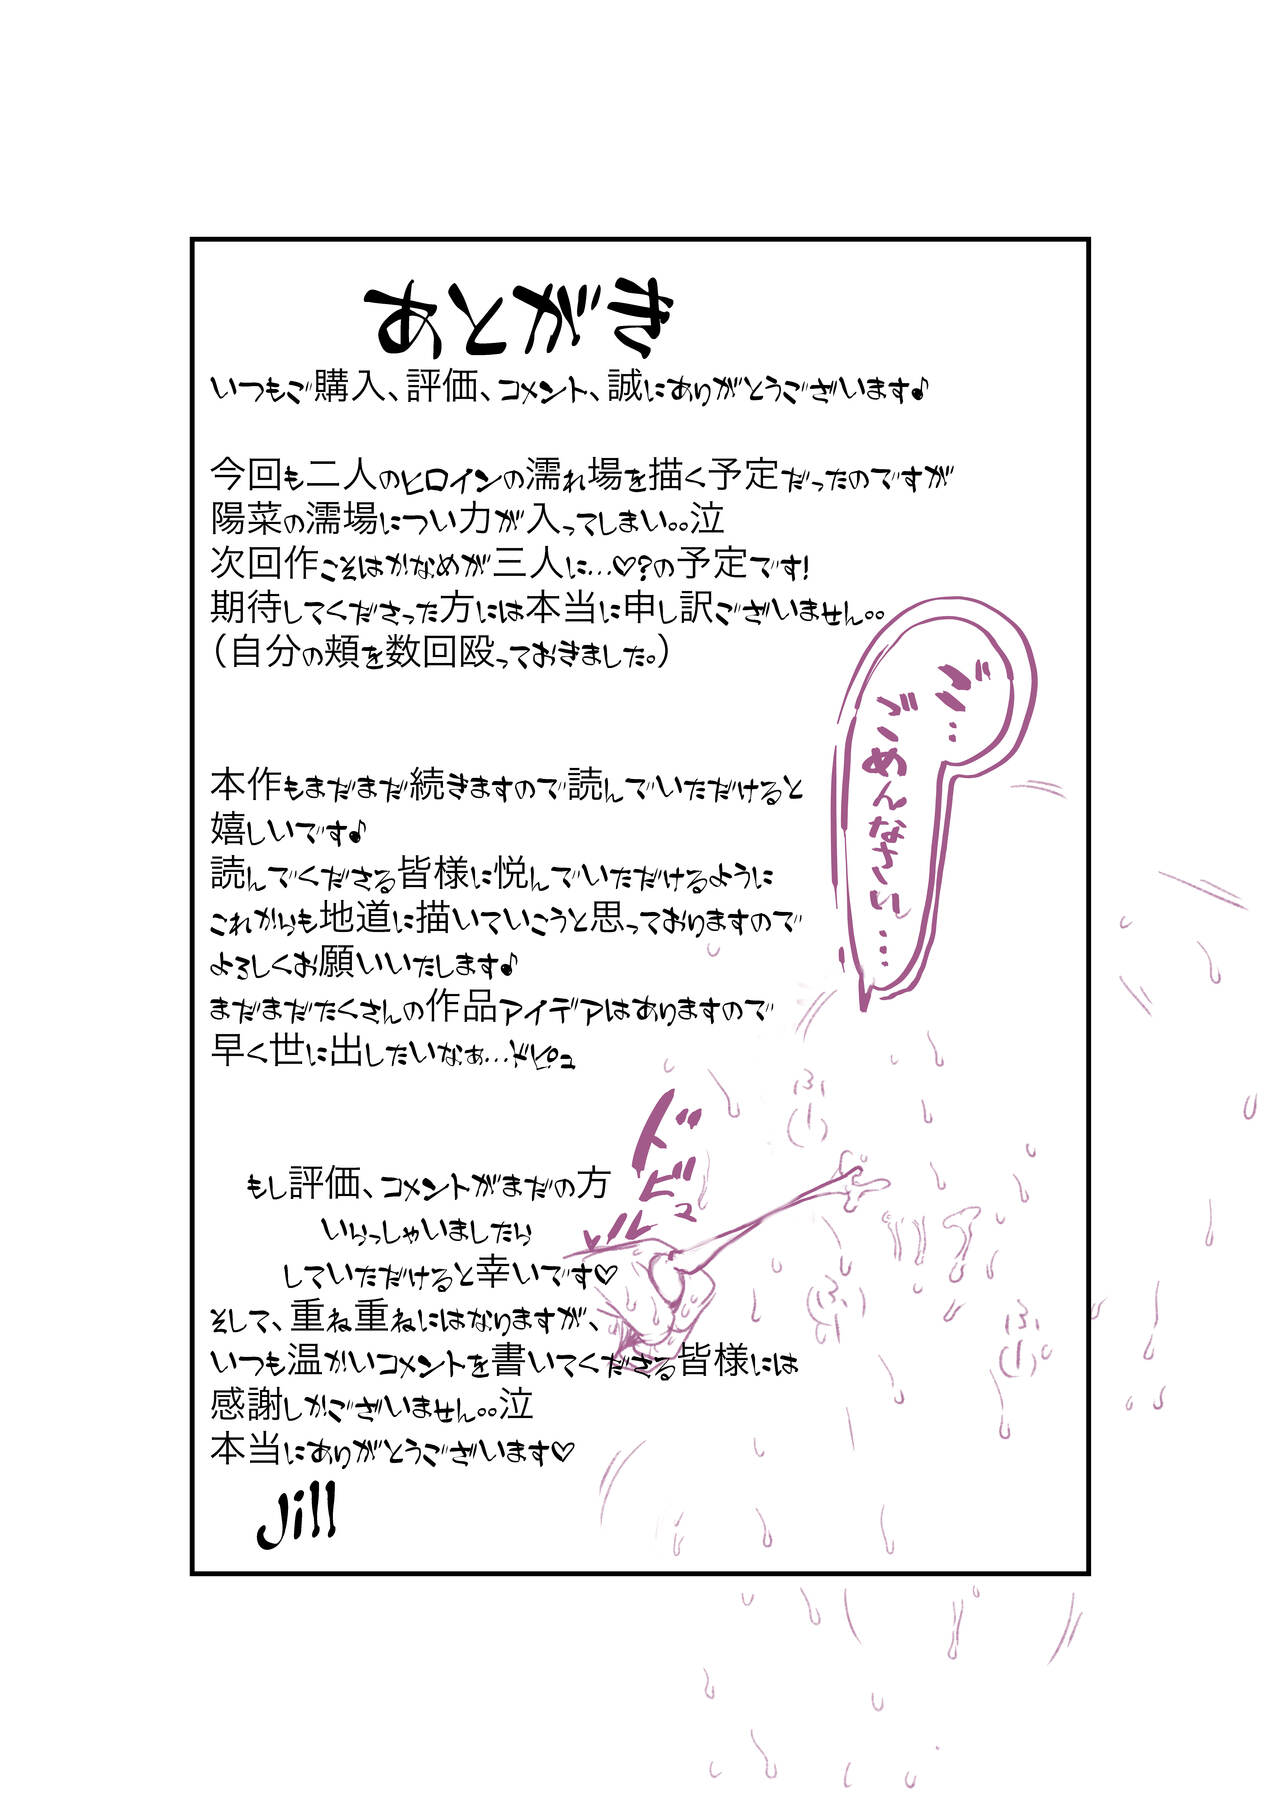 あとがき
いつもご購入、評価、コメント、誠にありがとうございます♪
今回も二人のヒロインの濡れ場を描く予定だったのですが
陽菜の濡場につい力が入ってしまい。。泣
次回作こそはかなめが三人に…♡?の予定です!
期待してくださった方には本当に申し訳ございません。。
（自分の頬を数回殴っておきました。）
ご…
ごめんなさい…
本作もまだまだ続きますので読んでいただけると
嬉しいです♪
読んでくださる皆様に悦んでいただけるように
これからも地道に描いていこうと思っておりますので
よろしくお願いいたします♪
まだまだたくさんの作品アイデアはありますので
早く世に出したいなぁ…ドピュ
もし評価、コメントがまだの方
いらっしゃいましたら
していただけると幸いです♡
そして、重ね重ねにはなりますが、
いつも温かいコメントを書いてくださる皆様には
感謝しかございません。。泣
本当にありがとうございます♡
Jill
ふぃ
ふぃ